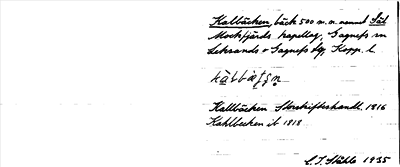 Kalbäcken, bäck 500 m. n. numret Säl
Mockfjärds kapellag, Gagnefs sn
Leksands o Gagnefs dg. Kopp. l.
Kallbäcken Storskifteshandl. 1816
Kahlbecken ib 1818
C. I. Ståhle 1935